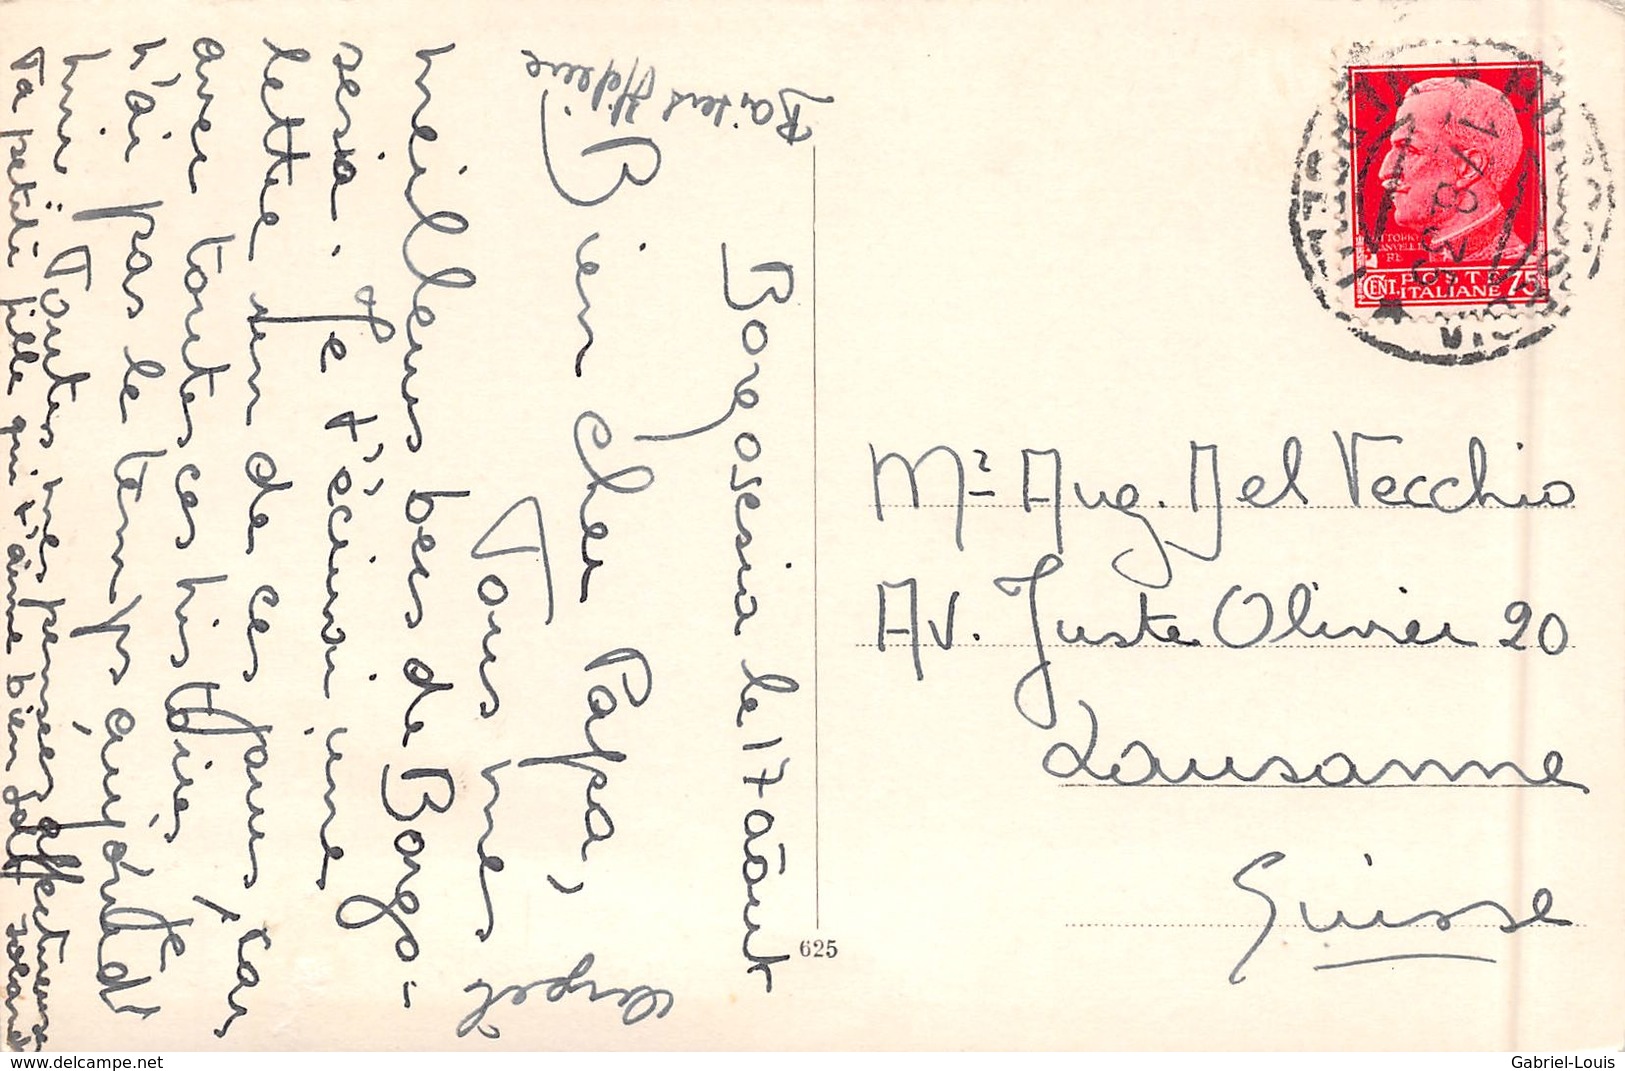 Borgosesia le 17 août
Bien cher Papa,
Tous mes
meilleurs becs de Borgo-
sesia. Je t'écrirai une
lettre un de ces jours
avec toutes ces histoires, car
n'ai pas le temps aujourd'
hui. Toutes mes pensées affectueuses
Ta petite fille qui t'aime bien
Baisers Hélène
Mr Aug. Del Vecchio
Av. Juste Olivier 20
Lausanne
Suisse
625
CENT. POSTE 75
ITALIANE
www.delcampe.net
Gabriel-Louis